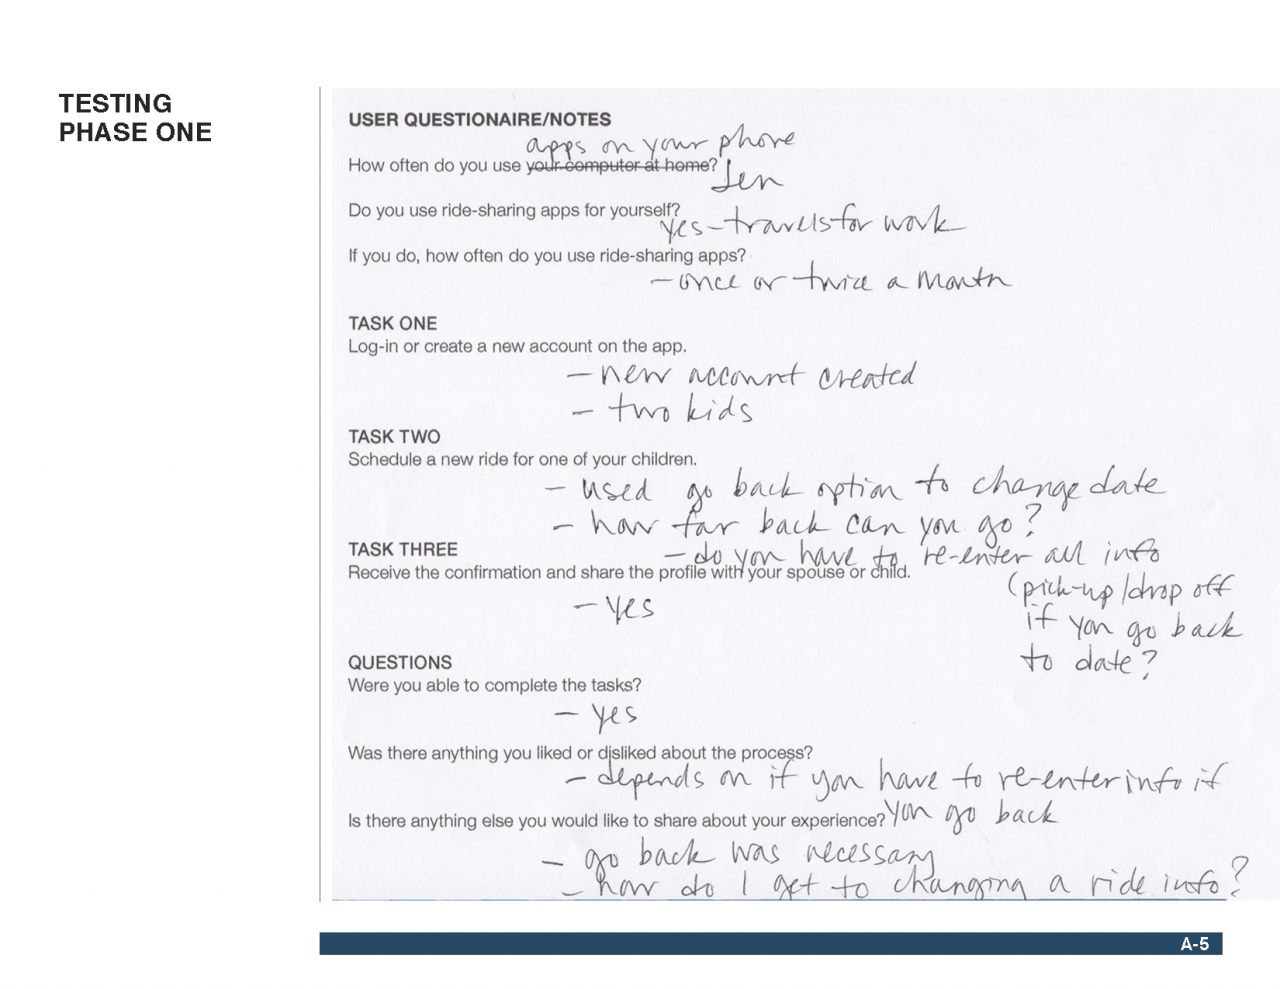 TESTING
PHASE ONE
USER QUESTIONAIRE/NOTES
apps on your phone
How often do you use your computer at home?
Jen
Do you use ride-sharing apps for yourself?
yes-travels for work
If you do, how often do you use ride-sharing apps?
- once or twice a month
TASK ONE
Log-in or create a new account on the app.
- new account created
- two kids
TASK TWO
Schedule a new ride for one of your children.
- used go back option to change date
- how far back can you go?
TASK THREE
- do you have to re-enter all info
Receive the confirmation and share the profile with your spouse or child.
(pick-up/drop off
- yes
if you go back
to date?
QUESTIONS
Were you able to complete the tasks?
- yes
Was there anything you liked or disliked about the process?
- depends on if you have to re-enter info if
you go back
Is there anything else you would like to share about your experience?
- go back was necessary
- how do I get to changing a ride info?
A-5